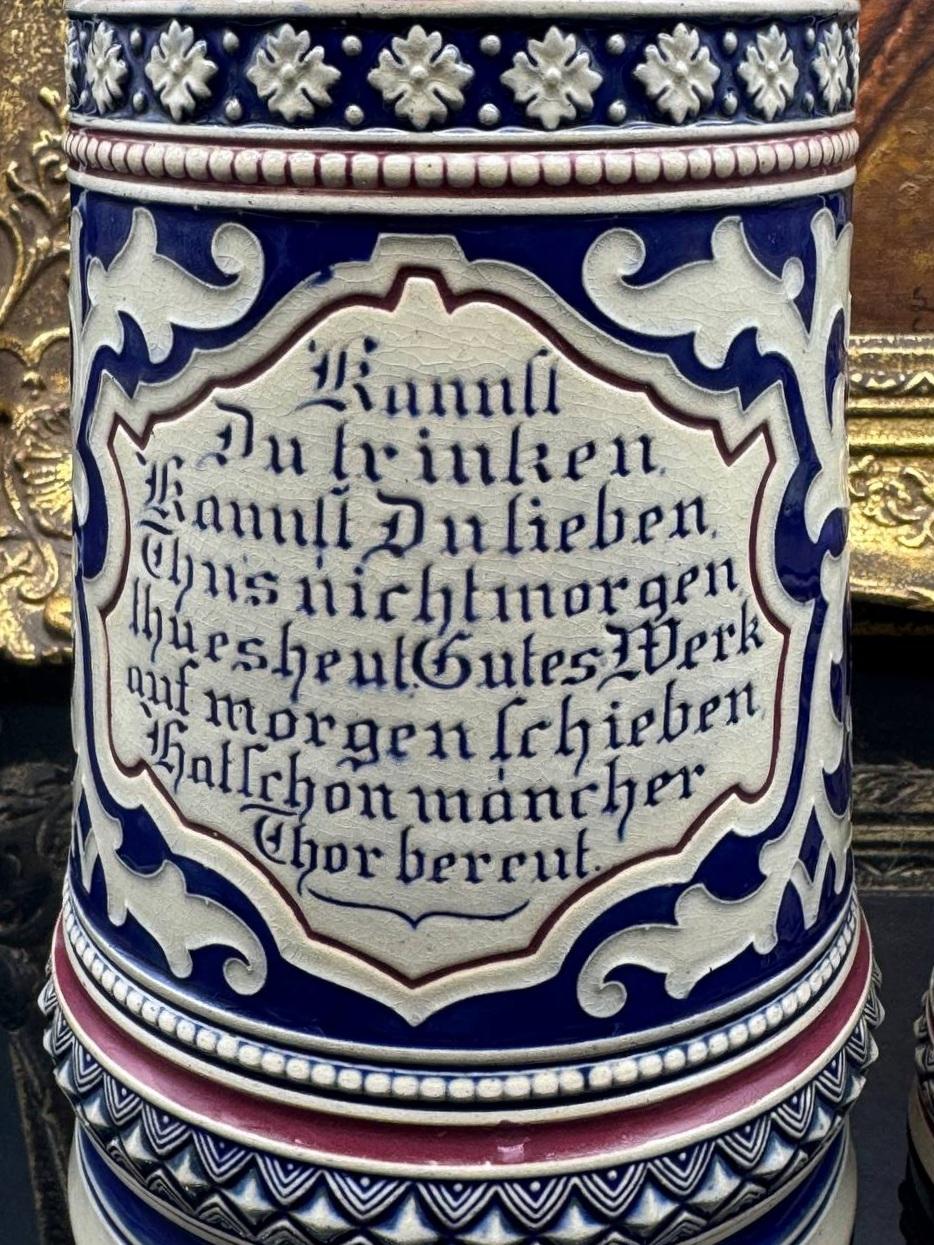 Kannst
Du trinken,
Kannst Du lieben,
Thu's nicht morgen
thu es heut, Gutes Werk
auf morgen schieben,
Hat schon mancher
Thor bereut.